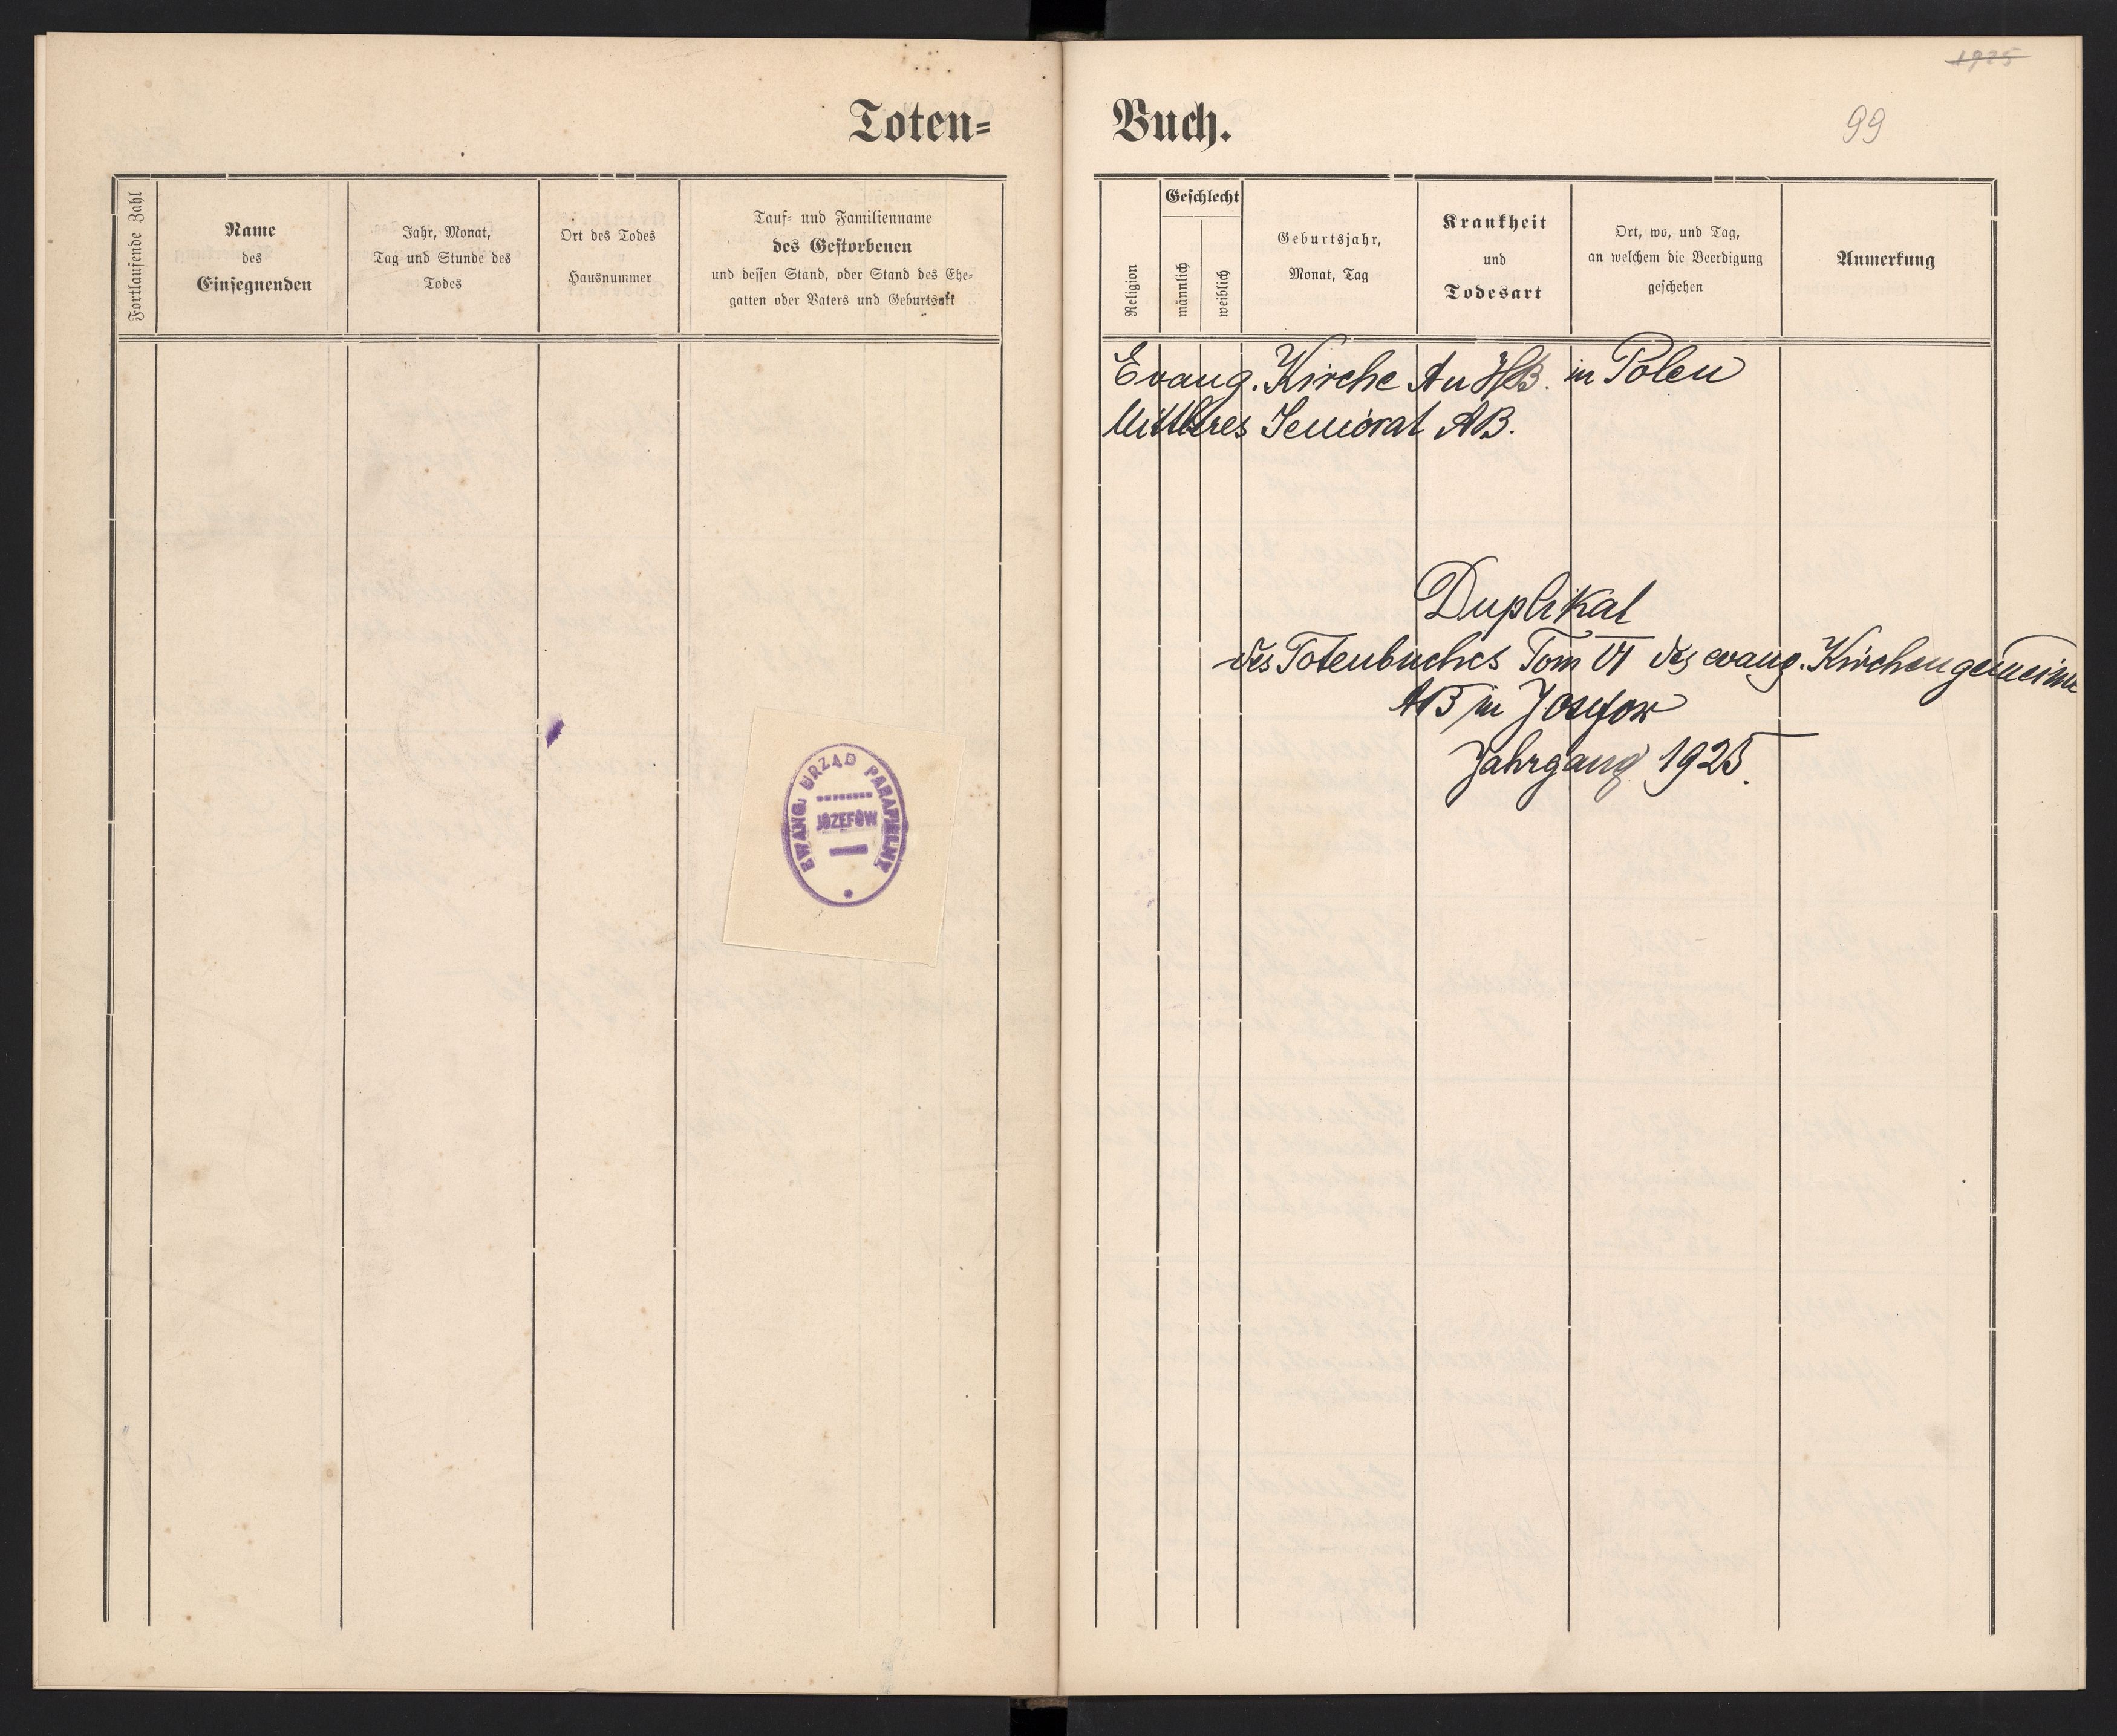 Toten=
Fortlaufende Zahl
Name
des
Einsegnenden
Jahr, Monat,
Tag und Stunde des
Todes
Ort des Todes
Hausnummer
Tauf= und Familienname
des Gestorbenen
und dessen Stand, oder Stand des Ehe=
gatten oder Vaters und Geburtsort
EWANG. URZĄD PARAFIELNY
JÓZEFÓW
1925
99
Buch.
Religion
Geschlecht
männlich
weiblich
Geburtsjahr,
Monat, Tag
Krankheit
und
Todesart
Ort, wo, und Tag,
an welchem die Beerdigung
geschehen
Anmerkung
Evang. Kirche A u HB. in Polen
Mittleres Seniorat AB.
Duplikat
des Totenbuches Tom VI der evang. Kirchengemeinde
AB in Josefow
Jahrgang 1925.